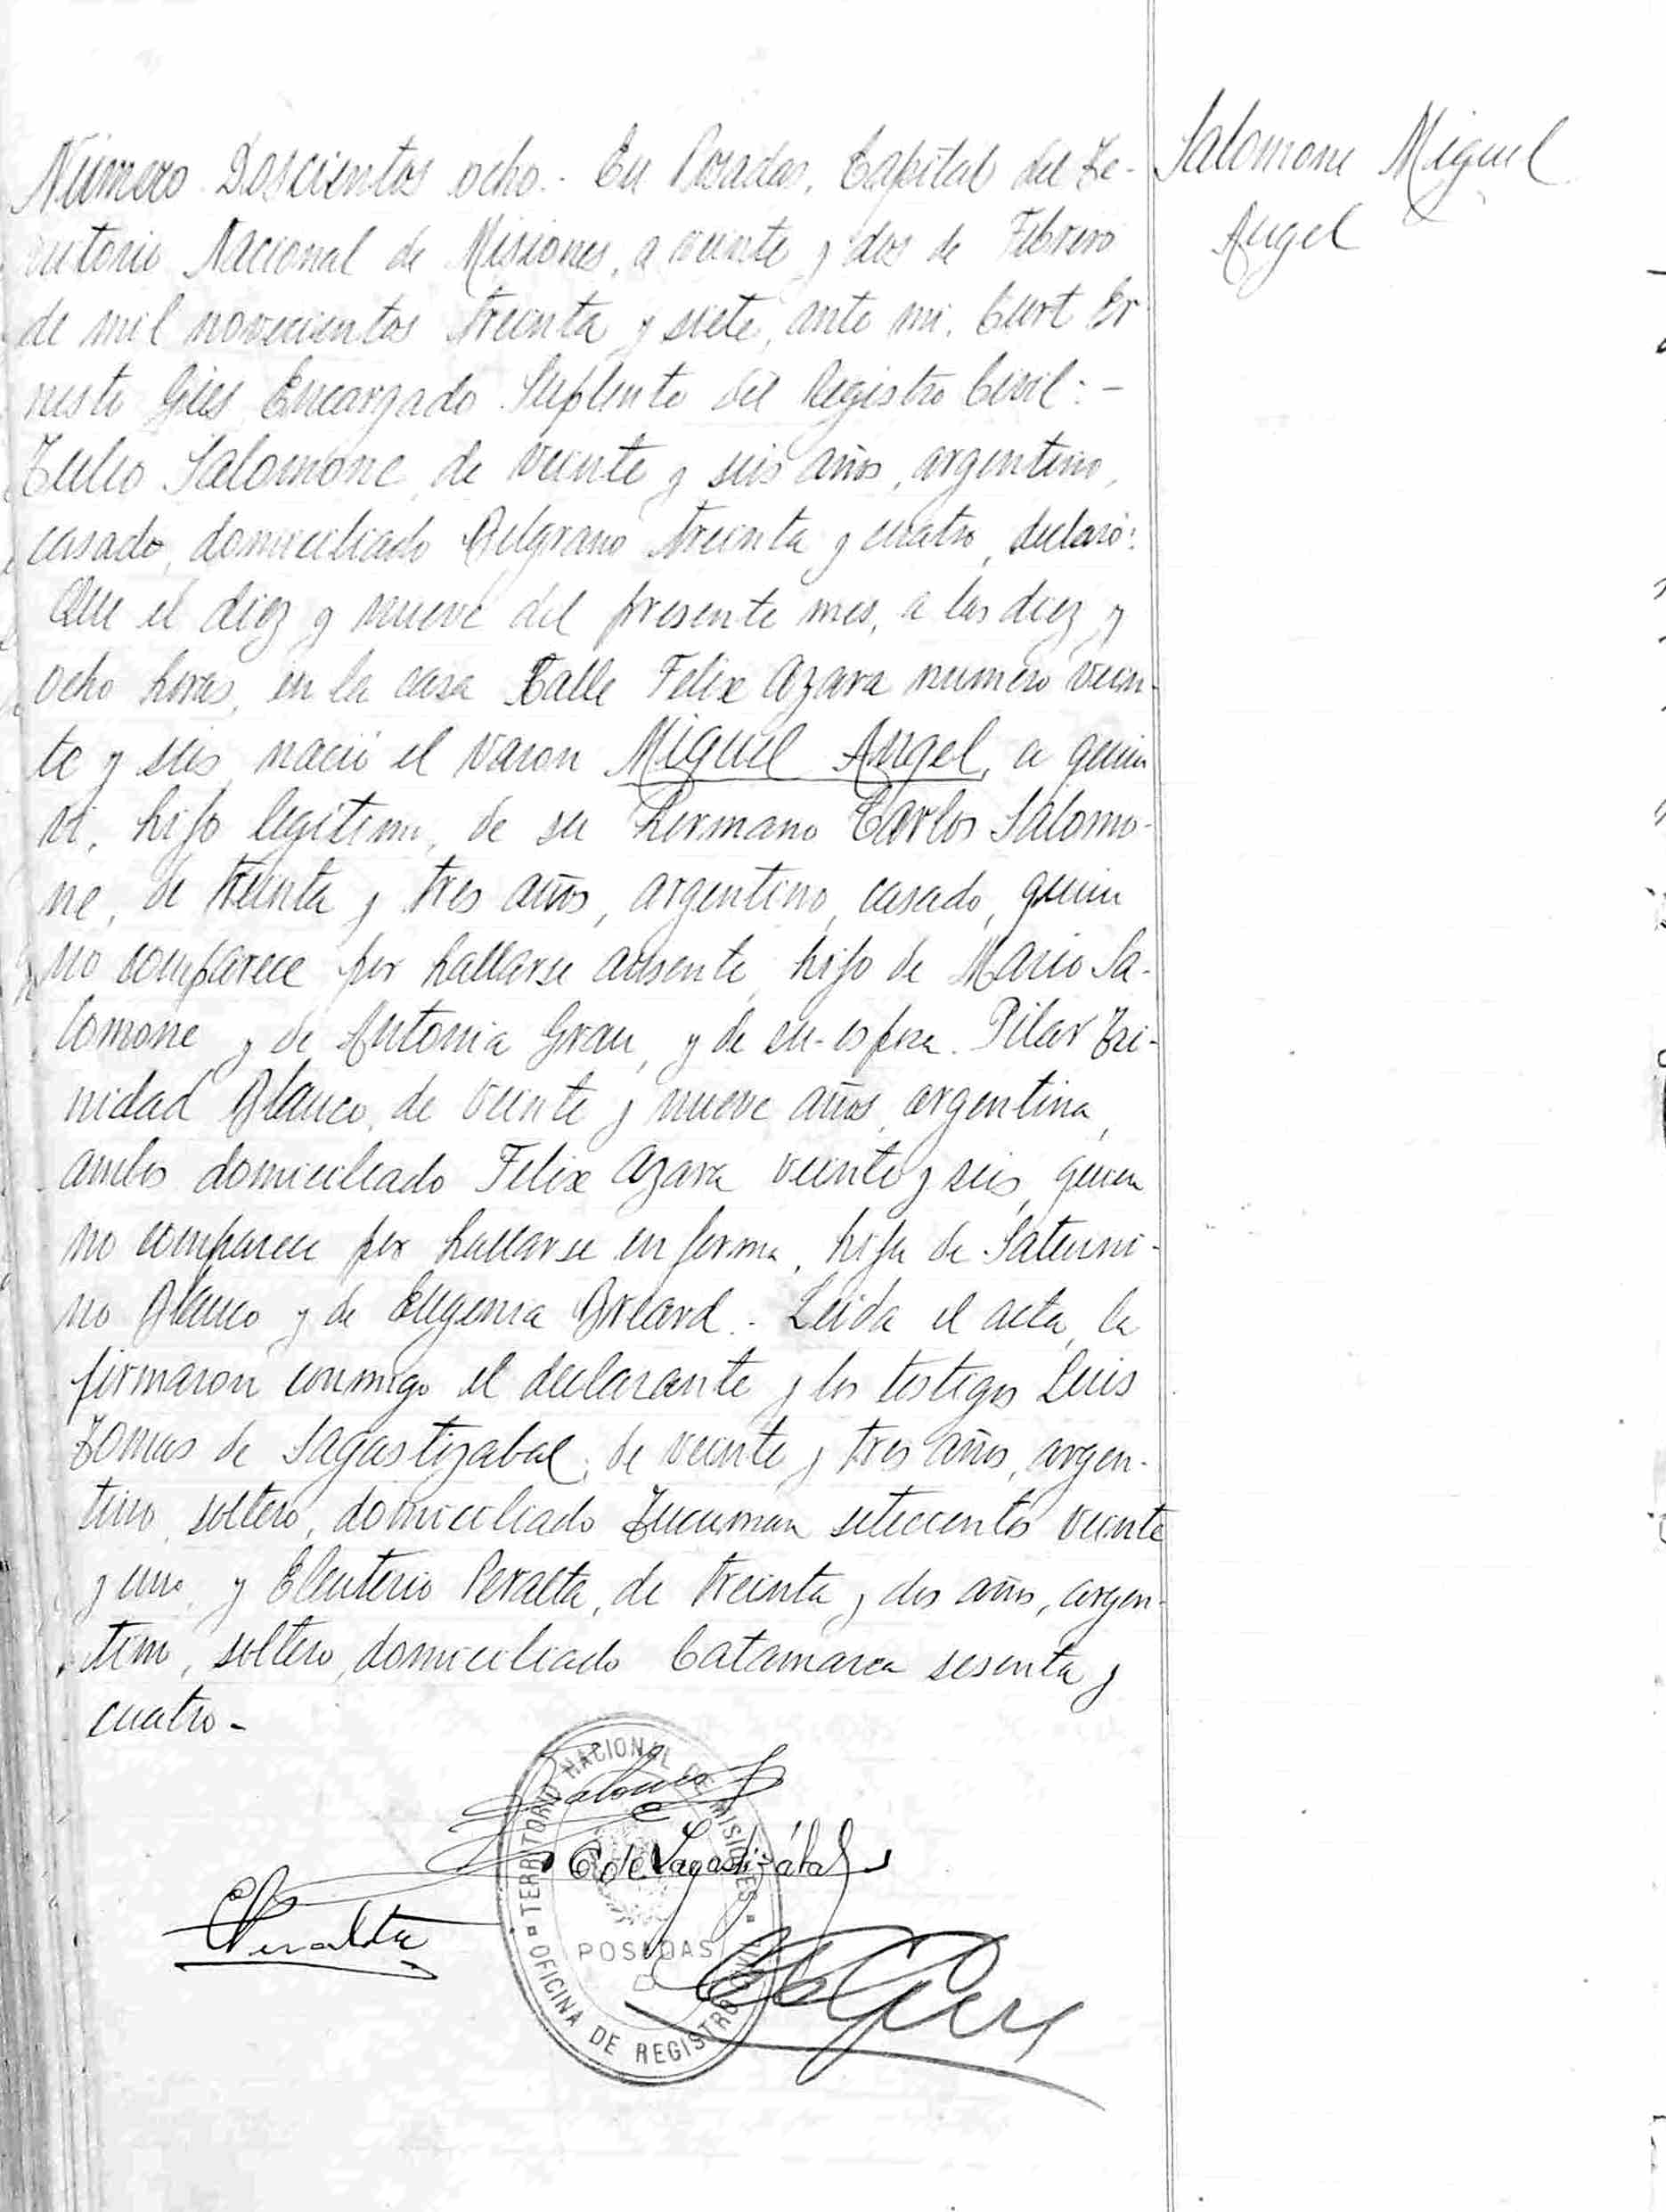 Número Doscientos ocho.- En Posadas, Capital del Te-
rritorio Nacional de Misiones, a veinte y dos de Febrero
de mil novecientos treinta y siete, ante mi, Curt Er-
nesto Gies Encargado Suplente del Registro Civil:-
Tulio Salomone, de veinte y seis años, argentino,
casado, domiciliado Belgrano treinta y cuatro, declaró:
Que el diez y nueve del presente mes, a las diez y
ocho horas, en la casa Calle Felix Azara numero vein-
te y seis nació el varon Miguel Angel, a quien
ví, hijo legitimo, de su hermano Carlos Salomo-
ne, de treinta y tres años, argentino, casado, quien
no comparece por hallarse ausente, hijo de Mario Sa-
lomone y de Antonia Grau, y de su esposa Pilar Tri-
nidad Blanco, de veinte y nueve años, argentina,
ambos domiciliado Felix Azara veinte y seis, quien
no comparece por hallarse enferma, hija de Saturni-
no Blanco y de Eugenia Breard.- Leida el acta, la
firmaron conmigo el declarante y los testigos Luis
Tomas de Sagastizabal, de veinte y tres años, argen-
tino, soltero, domiciliado Tucuman setecientos veinte
y uno, y Eleuterio Peralta, de treinta y dos años, argen-
tino, soltero, domiciliado Catamarca sesenta y
cuatro-
Salomone Miguel
Angel
TERRITORIO NACIONAL DE MISIONES
de Sagastizábal
EPeralta
POSADAS
OFICINA DE REGISTRO CIVIL